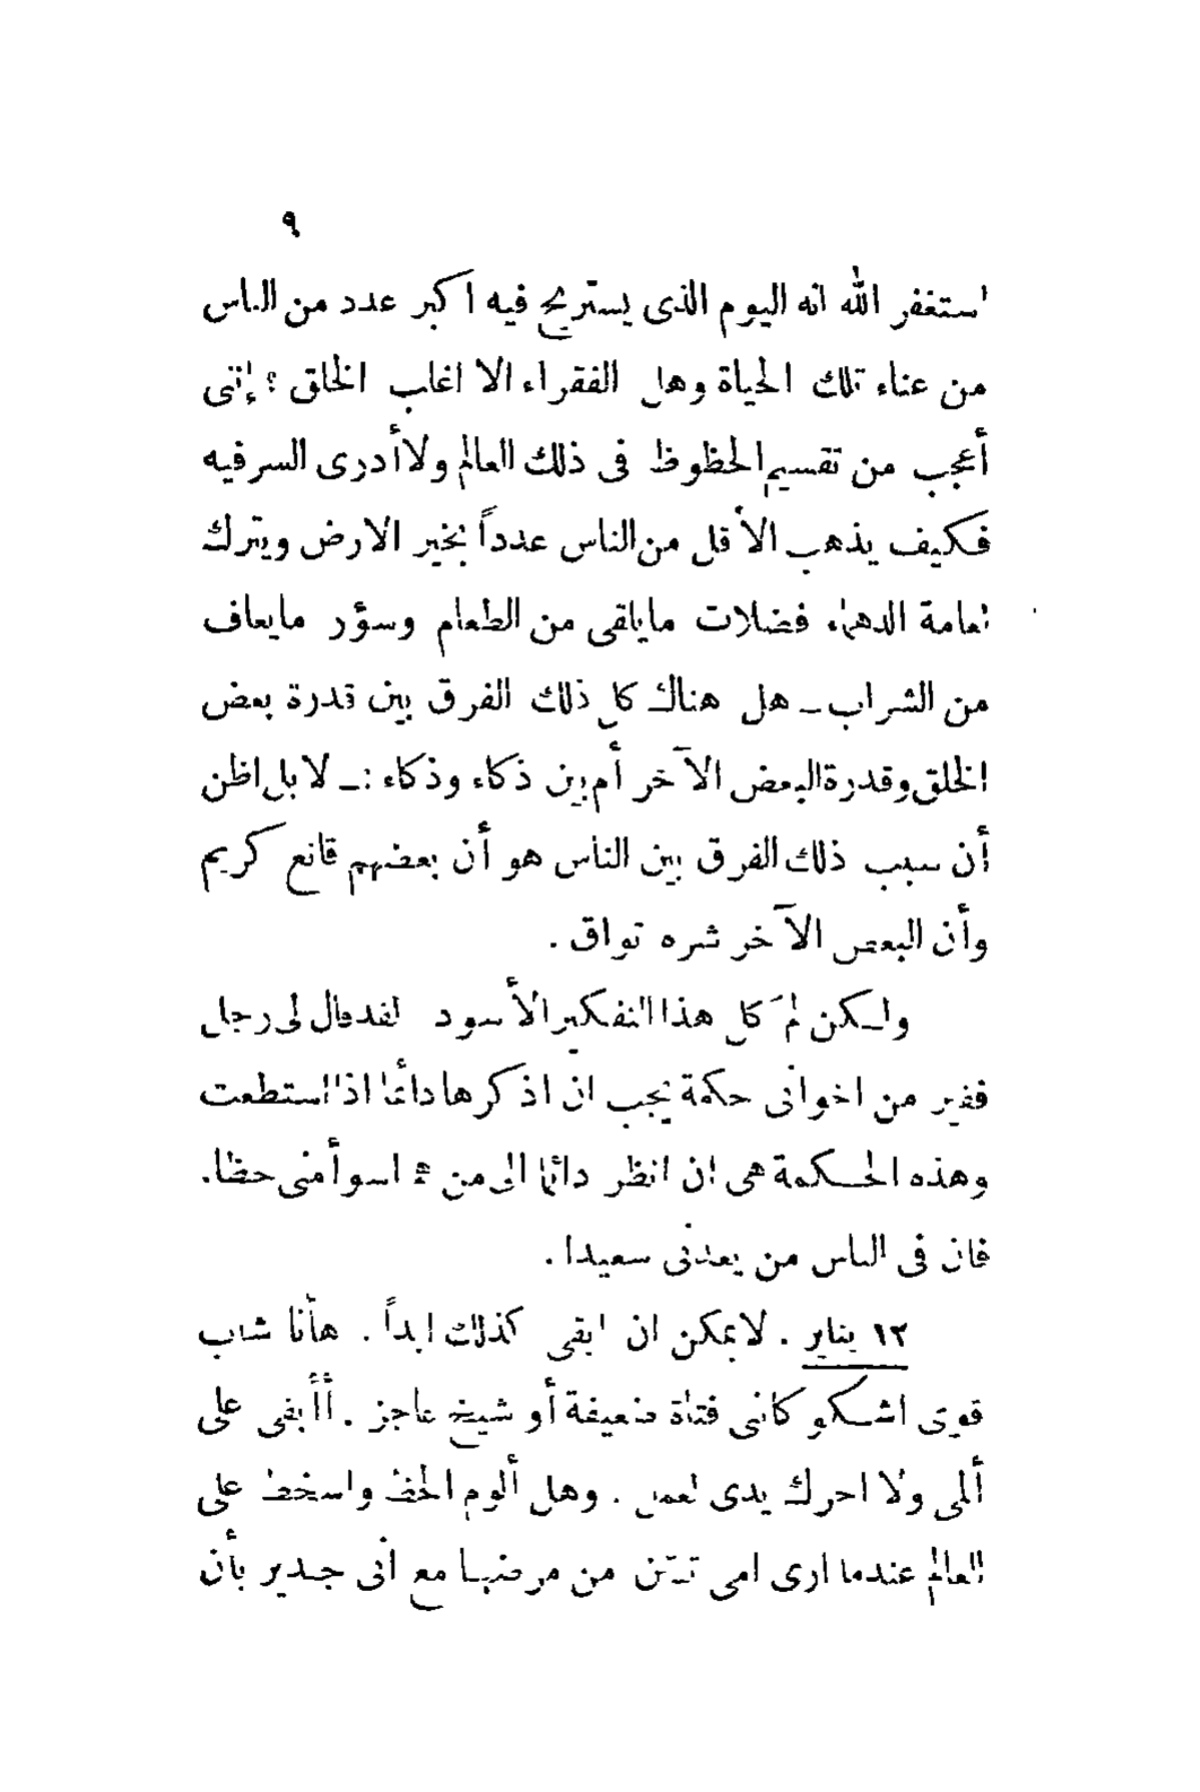 ٩
استغفر الله انه اليوم الذى يستريح فيه اكبر عدد من الناس
من عناء تلك الحياة وهل الفقراء الا اغلب الخلق ؟ إننى
أعجب من تقسيم الحظوظ فى ذلك العالم ولا أدرى السر فيه
فكيف يذهب الأقل من الناس عدداً بخير الارض ويترك
لعامة الدهماء فضلات ما يلقى من الطعام وسؤر ما يعاف
من الشراب ــ هل هناك كل ذلك الفرق بين قدرة بعض
الخلق وقدرة البعض الآخر أم بين ذكاء وذكاء : ــ لا بل اظن
أن سبب ذلك الفرق بين الناس هو أن بعضهم قانع كريم
وأن البعض الآخر شره تواق .
ولكن لمَ كل هذا التفكير الأسود لقد قال لى رجل
فقير من اخوانى حكمة يجب ان اذكرها دائما اذا استطعت
وهذه الحكمة هى ان انظر دائما الى من هم اسوأ منى حظا .
فان فى الناس من يعدنى سعيدا .
١٢ يناير . لا يمكن ان ابقى كذلك ابداً . هأنا شاب
قوى اشكو كانى فتاة ضعيفة أو شيخ عاجز . أأبقى على
ألمى ولا احرك يدى لعمل . وهل ألوم الحظ واسخط على
العالم عندما ارى امى تئن من مرضها مع أنى جدير بأن